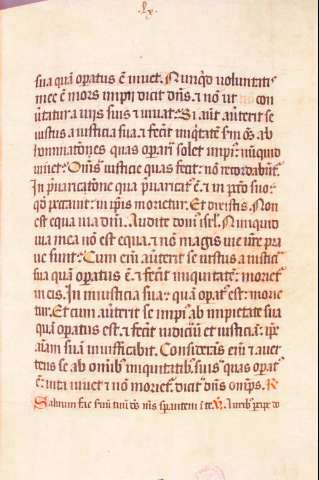 ·lx·
sua quā op̄atus ē uiuet. Nunq̄d voluntatis
mee ē mors impii dicit dn̄s. ⁊ nō ut con
u̓tatur a uiis suis ⁊ uiuat? Si aut̄ au̓terit se
iustus a iusticia sua. ⁊ fec̓it iniq̄tatē scdm̄ oēs ab
hominatōnes quas op̄ari solet impi᷒. nūquid
uiuet? Om̄s iusticie quas fecit. nō recordabūt᷒.
In p̄uaricatōne qua p̄uaricat᷒ ē. ⁊ in pctō suo
qd̓ peccauit. in ip̄is morietur. Et dixistis. Nō
est equa uia dn̄i. Audite dom᷒ isrl̄. Nunquid
uia mea nō est equa. ⁊ nō magis vie ur̄e pra
ue sunt? Cum eni᷒ au̓terit se iustus a iusticia
sua quā op̄atus ē. ⁊ fec̓it iniquitatē: moriet᷒
in eis. In iniusticia sua quā op̄at᷒ est: morie
tur. Et cum au̓terit se impi᷒ ab impietate sua
quā op̄atus est. ⁊ fec̓it iudiciū et iusticiā: ip̄e
aīam suā uiuificabit. Considerās eni᷒ ⁊ auer
tens se ab omib᷒ iniquitatib᷒ suis quas op̄at᷒
ē: uita uiuet ⁊ nō moriet᷒. dicit dn̄s om̄ps. R̷
Saluum fac seruū tuū ds̄ m̄s sperantem ī te. V̷. Aurib᷒ p̄cipe dn̄e